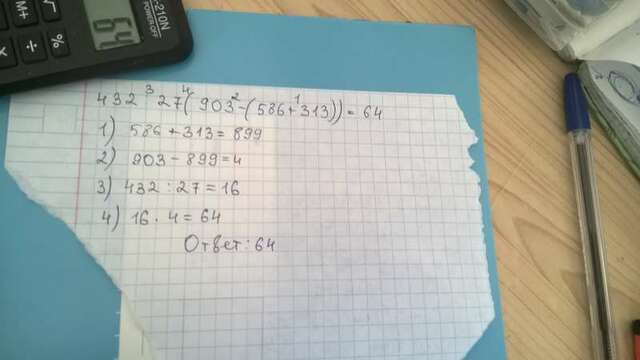 -210N
POWER OFF
49
M+
√
×
÷
%
432 ³ 27 ⁴( 903 ²-(586 ¹+313)) = 64
1) 586 + 313 = 899
2) 903 - 899 = 4
3) 432 : 27 = 16
4) 16 . 4 = 64
Ответ : 64